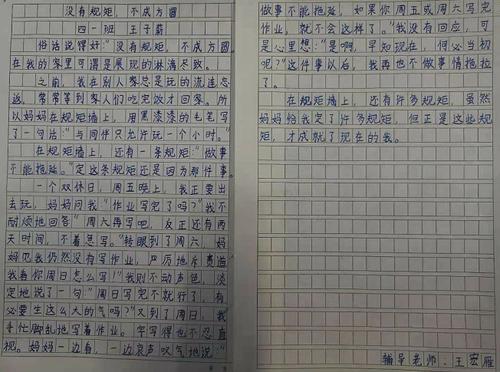 没有规矩,不成方圆
四一班 王子蔚
俗话说得好:"没有规矩,不成方圆
在我的家里可谓是展现的淋漓尽致。
之前,我在别人家总是玩的流连忘
返,常常等到家人们吃完饭才回家。所
以妈妈在规矩墙上,用黑漆漆的毛笔写
了一句话:"与同伴只允许玩一个小时。"
在规矩墙上,还有一条规矩:"做事
不能拖延。"定这条规矩还是因为那件事。
一个双休日,周五晚上,我正要出
去玩,妈妈问我"作业写完了吗?"我不
耐烦地回答"周六再写吧,反正还有两
天时间,不着急写。"转眼到了周六,妈
妈见我仍然没有写作业,严厉地斥责道
我看你周日怎么写!"我则不动声色,淡
定地说了一句"周日写完不就行了,有
必要生这么大的气吗?"又到了周日,我
手忙脚乱地写着作业。字写得也不忍直
视。妈妈一边看,一边哀声叹气地说:"
做事不能拖延,如果你周五或周六写完
作业,就不会这样了。"我没有回应,可
是心里想:"是啊,早知现在,何必当初
呢?"这件事以后,我再也不做事情拖拉
了。
在规矩墙上,还有许多规矩,虽然
妈妈给我定了许多规矩,但正是这些规
矩,才成就了现在的我。
辅导老师:王宏雁